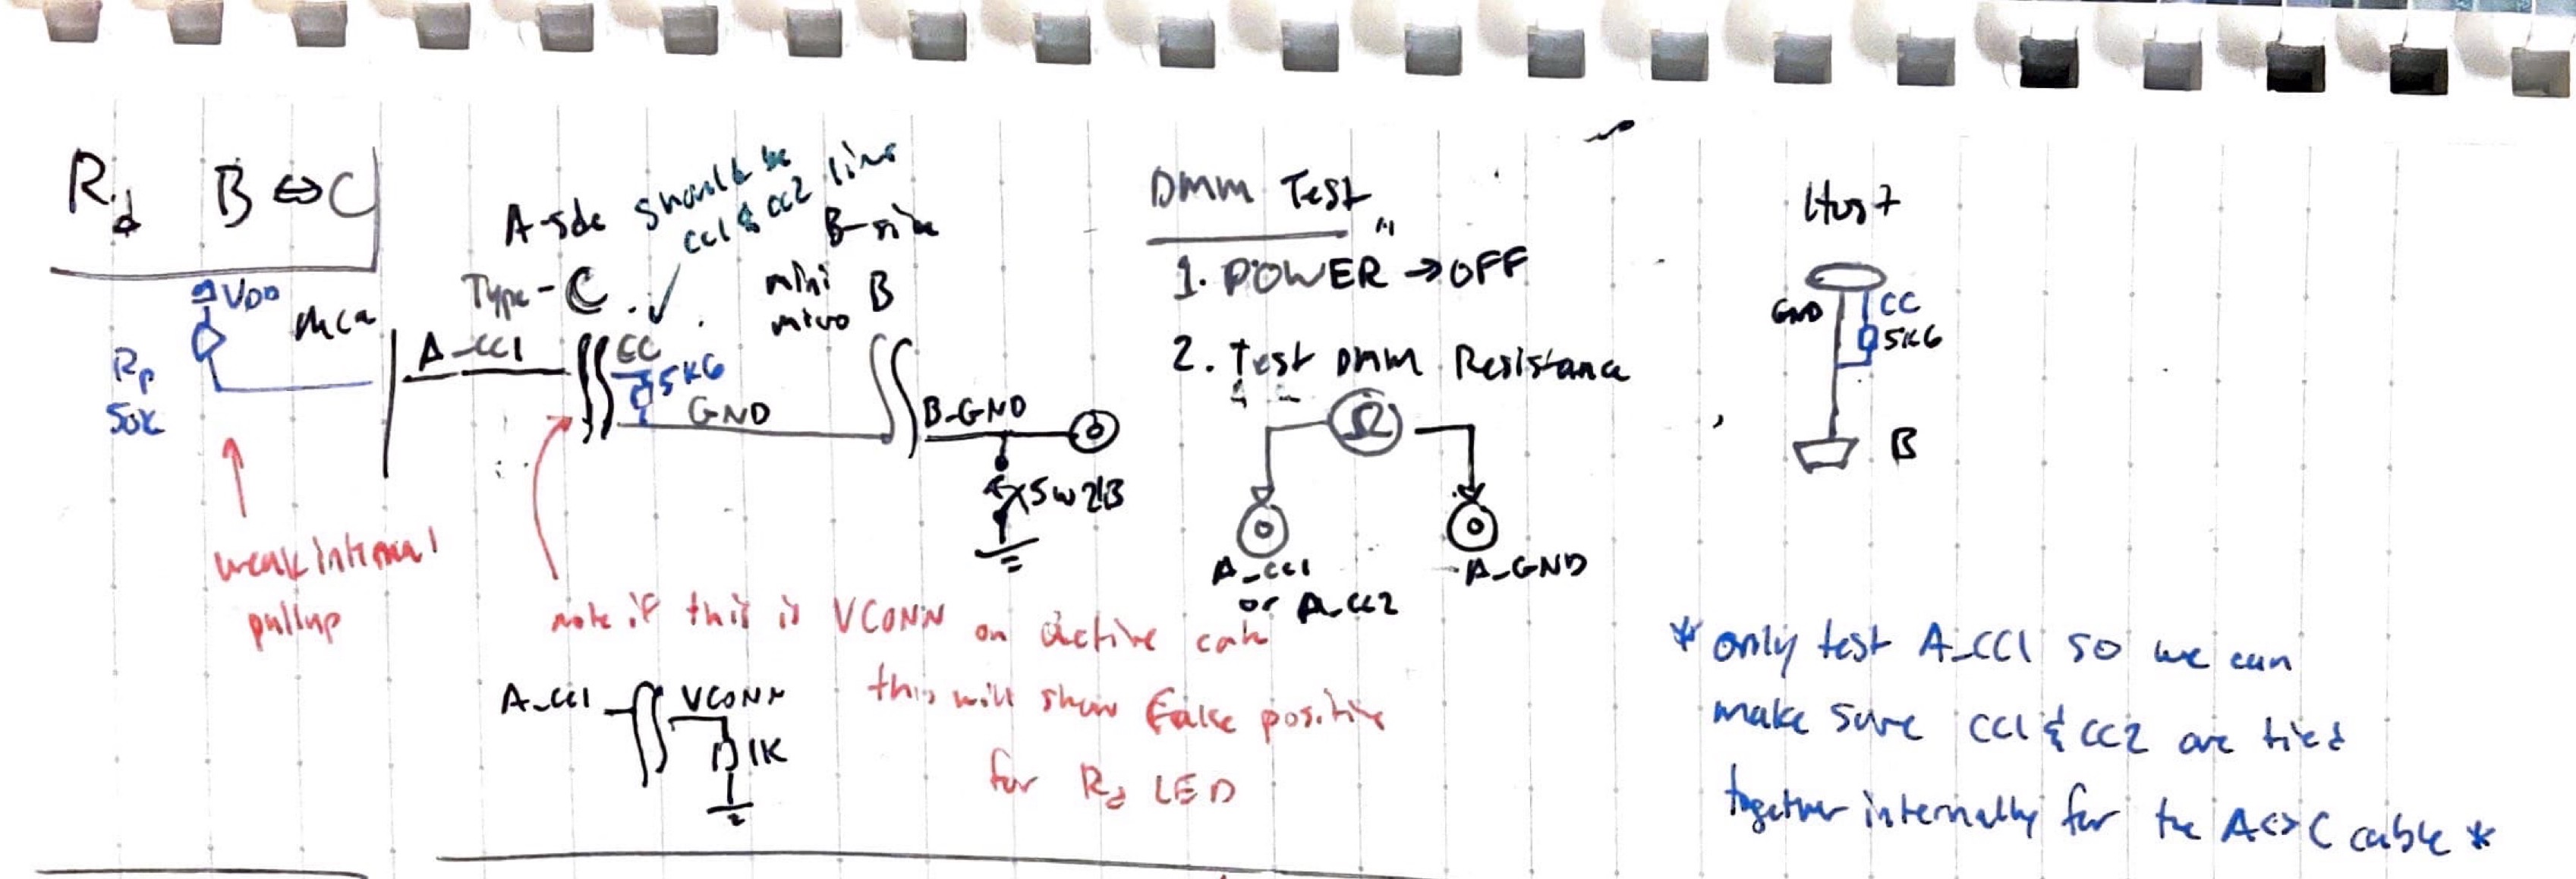 Rd B ⇔ C
VDD
MCU
Rp
50K
weak internal
pullup
A-side should be
CC1 & CC2 line
B-side
Type-C
mini
micro B
A_CC1
CC
5K6
GND
B-GND
SW2B
note if this is VCONN on active cable
this will show false positive
for Rd LED
A_CC1
VCONN
1K
DMM Test
1. POWER → OFF
2. Test DMM Resistance
Ω
A_CC1
or A_CC2
A_GND
Host
GND
CC
5K6
B
* only test A_CC1 so we can
make sure CC1 & CC2 are tied
together internally for the A<>C cable *